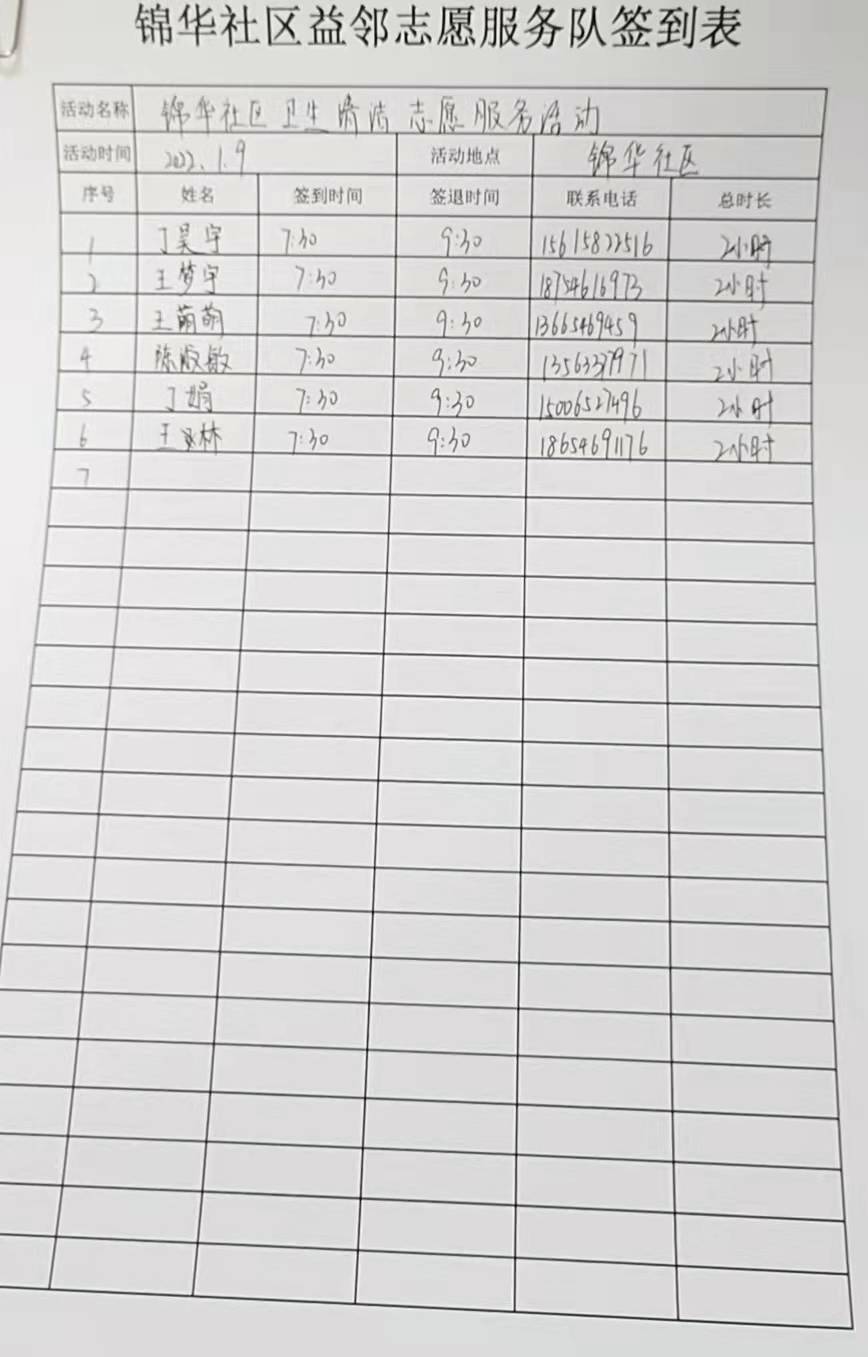 锦华社区益邻志愿服务队签到表
活动名称 锦华社区卫生清洁志愿服务活动
活动时间 2022.1.9 活动地点 锦华社区
序号 姓名 签到时间 签退时间 联系电话 总时长
1 丁昊宇 7:30 9:30 15615822516 2小时
2 王梦宇 7:30 9:30 18754616973 2小时
3 王萌萌 7:30 9:30 13665469459 2小时
4 陈敏 7:30 9:30 2小时
5 丁娟 7:30 9:30 15006527496 2小时
6 王林 7:30 9:30 18654691176 2小时
7